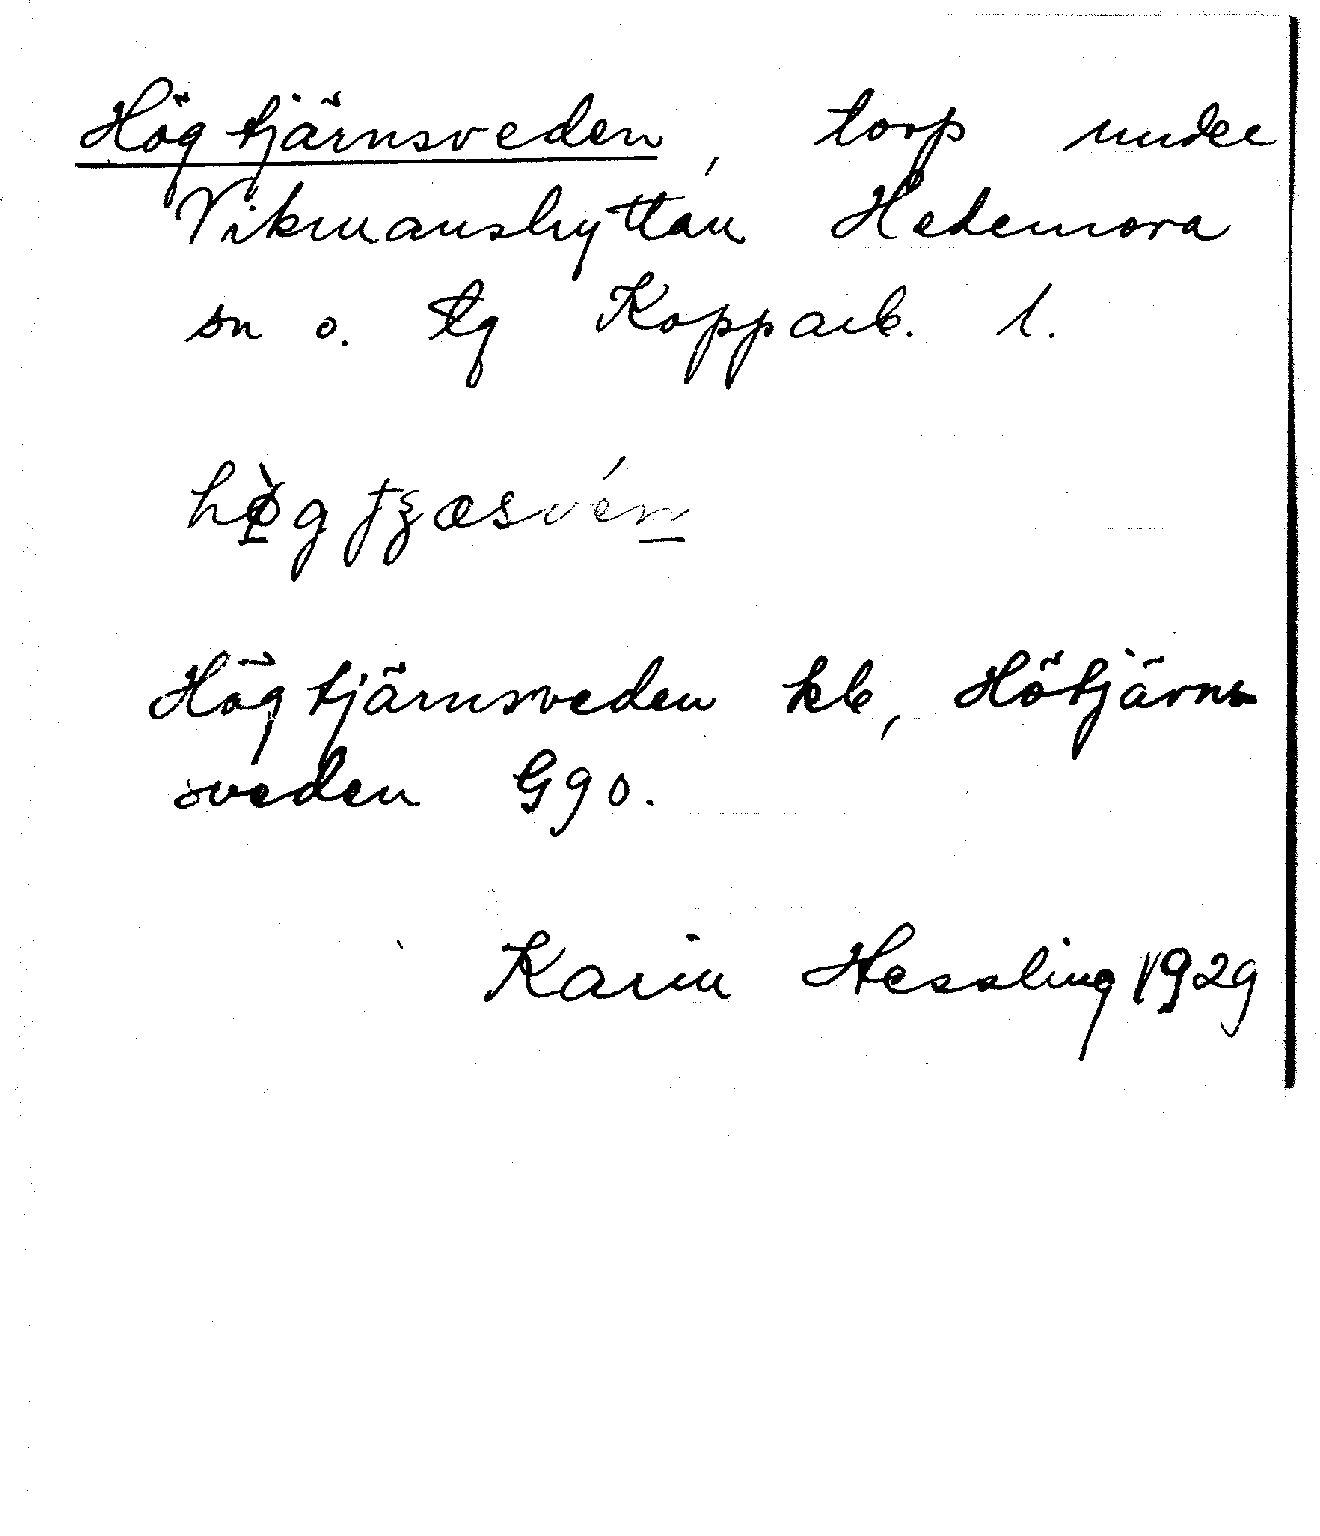 Högtjärnsveden, torp under
Vikmanshyttan Hedemora
sn o. tg Kopparb. l.
Högtjärnsveden kb, Hötjärns
sveden Ggo.
Karin Hessling 1929